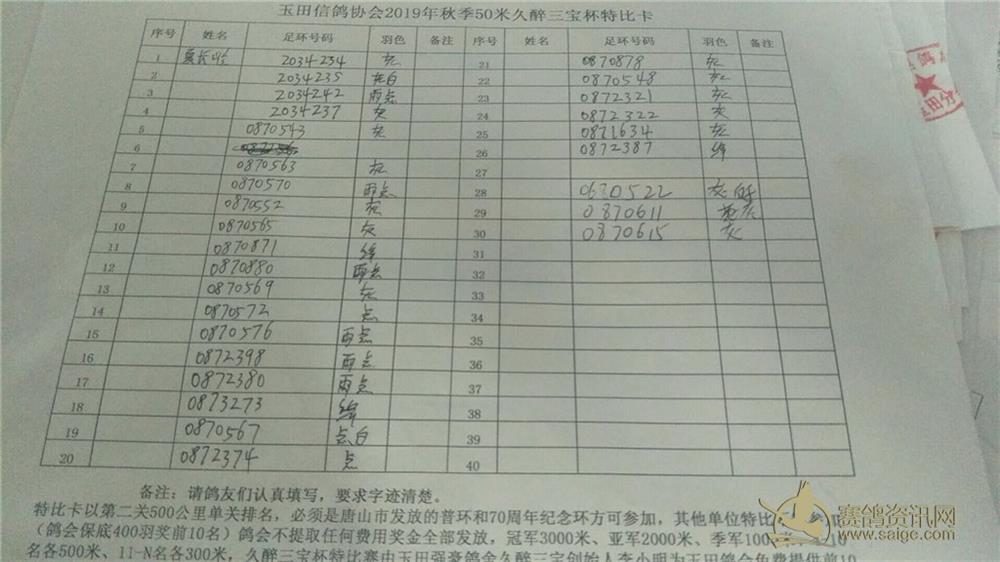 玉田信鸽协会2019年秋季50米久醉三宝杯特比卡
序号 姓名 足环号码 羽色 备注 序号 姓名 足环号码 羽色 备注
1 2034234 灰 21 0870878 灰
2 2034235 灰白 22 0870548 灰
3 2034242 雨点 23 0872321 灰
4 2034237 灰 24 0872322 灰
5 0870543 灰 25 0871634 灰
6 26 0872387 绛
7 0870563 灰 27
8 0870570 雨点 28
9 0870552 灰 29 0870611
10 0870565 灰 30 0870615 灰
11 0870871 绛 31
12 0870880 雨点 32
13 0870569 灰 33
14 0870572 点 34
15 0870576 雨点 35
16 0872398 雨点 36
17 0872380 雨点 37
18 0873273 绛 38
19 0870567 点白 39
20 0872374 点 40
备注：请鸽友们认真填写，要求字迹清楚。
特比卡以第二关500公里单关排名，必须是唐山市发放的普环和70周年纪念环方可参加，其他单位特比
（鸽会保底400羽奖前10名）鸽会不提取任何费用奖金全部发放，冠军3000米、亚军2000米、季军100
名各500米、11-N名各300米，久醉三宝杯特比赛由玉田强豪鸽舍久醉三宝创始人李小明为玉田鸽会免费提供前10
赛鸽资讯网
www.saige.com